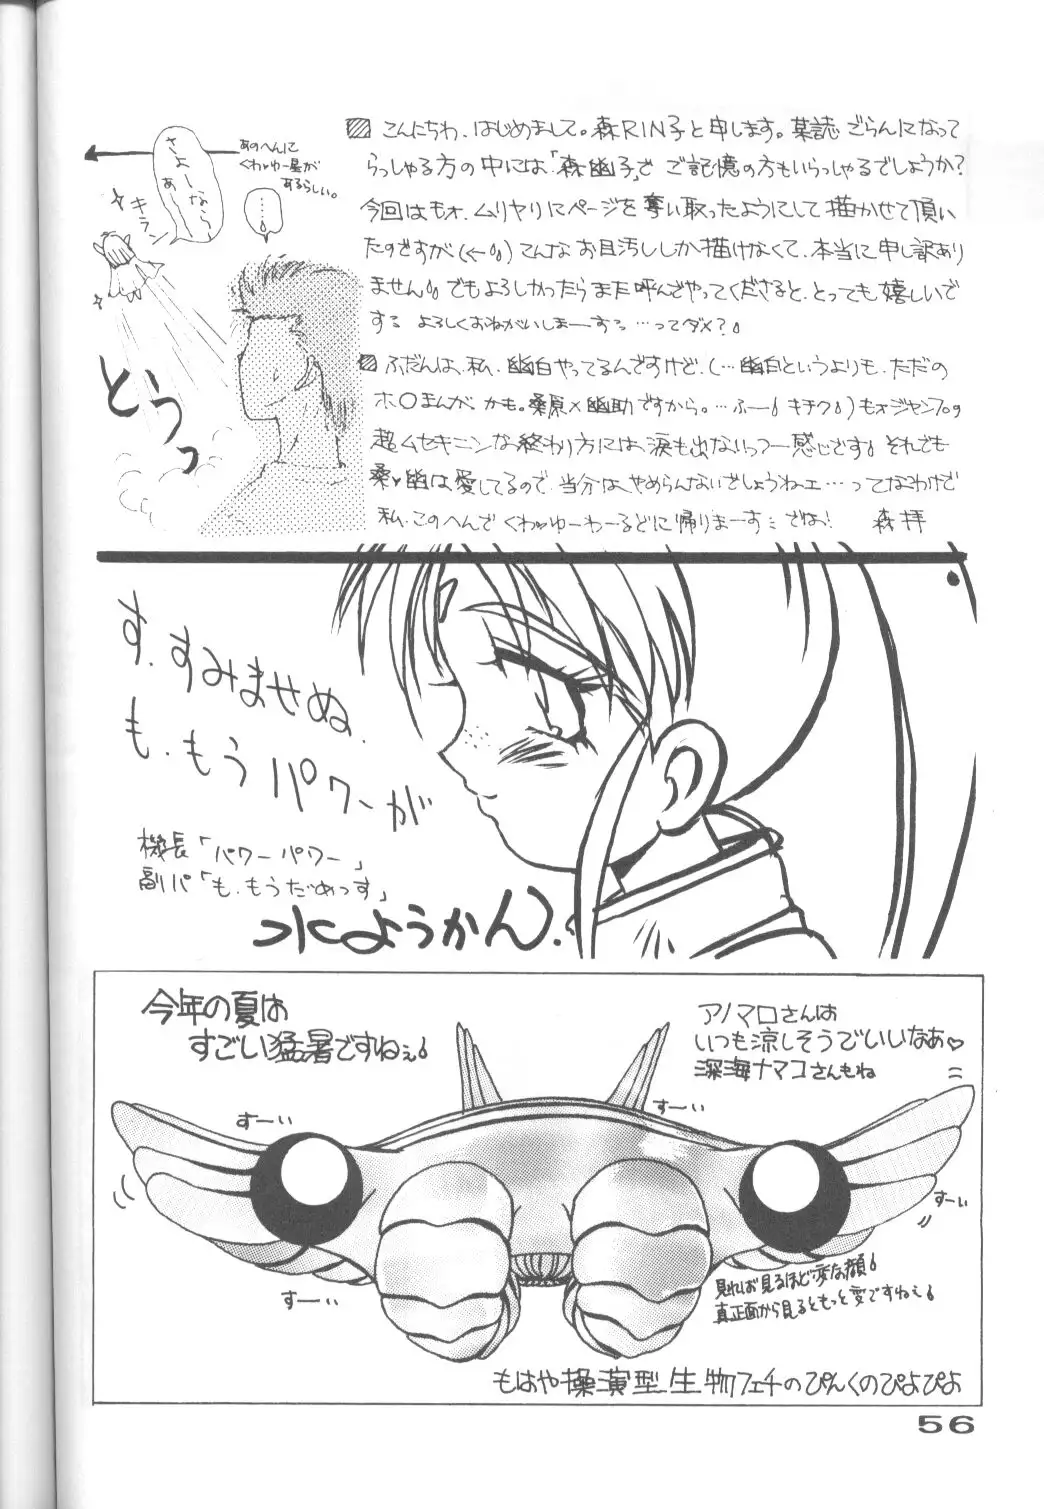 こんにちわ、はじめまして。森RIN子と申します。某誌ごらんになって
らっしゃる方の中には、「森幽子」でご記憶の方もいらっしゃるでしょうか?
今回はもォ、ムリヤリにページを奪い取ったようにして描かせて頂い
たのですが(←)こんなお目汚ししか描けなくて、本当に申し訳あり
ません。でもよろしかったらまた呼んでやってくださると、とっても嬉しいで
する よろしくおねがいしまーする…ってダメ?
ふだんは、私、幽白やってるんですけど、(…幽白というよりも、ただの
ホ○まんが、かも。桑原×幽助ですから。…ふー キチク)もォジャンプの
超ムセキニンな終わり方には、涙も出ないっつー感じです。それでも
桑♥幽は愛してるので、当分はやめらんないでしょうねェ…ってなわけで
私、このへんでくわゆーわーるどに帰りまーす では! 森拝
あのへんに
くわゆー星が
あるらしい。
さよーなら
あ
……
キラン
とうっ
す、すみませぬ、
も、もうパワーが
機長「パワーパワー」
副パ「も、もうだめっす」
水ようかん.
今年の夏は
すごい猛暑ですねぇ
アノマロさんは
いつも涼しそうでいいなあ♡
深海ナマコさんもね
すーい
すーい
すーい
すーい
見れば見るほど変な顔
真正面から見るともっと変ですねぇ
もはや操演型生物フェチのぴんくのぴよぴよ
56